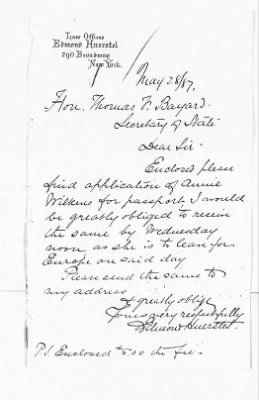 Law Offices
Edmond Huerstel
290 Broadway
New York.
May 28/87.
Hon. Thomas F. Bayard.
Secretary of State
Dear Sir.
Enclosed please
find application of Annie
Wilkens for passport, I would
be greatly obliged to receive
the same by Wednesday
noon as she is to leave for
Europe on said day
Please send the same to
my address
& greatly oblige
Yours very respectfully
Edmond Huerstel.
P.S. Enclosed $5.00 the fee.